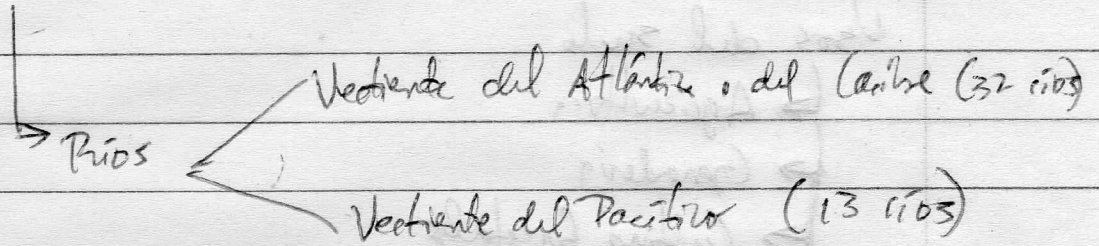 Vertiente del Atlántico o del Caribe (32 ríos)
Ríos
Vertiente del Pacífico (13 ríos)